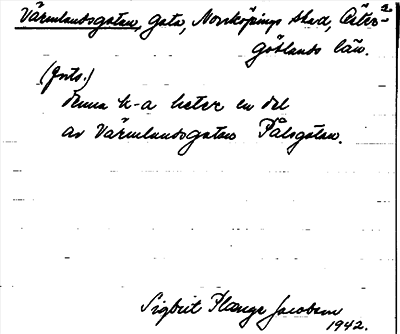 Värmlandsgatan, gata, Norrköpings stad, Öster-
götlands län.
(forts.)
denna k-a heter en del
av Värmlandsgatan Pålsgatan.
Sigbrit Plange Jacobson
1942.